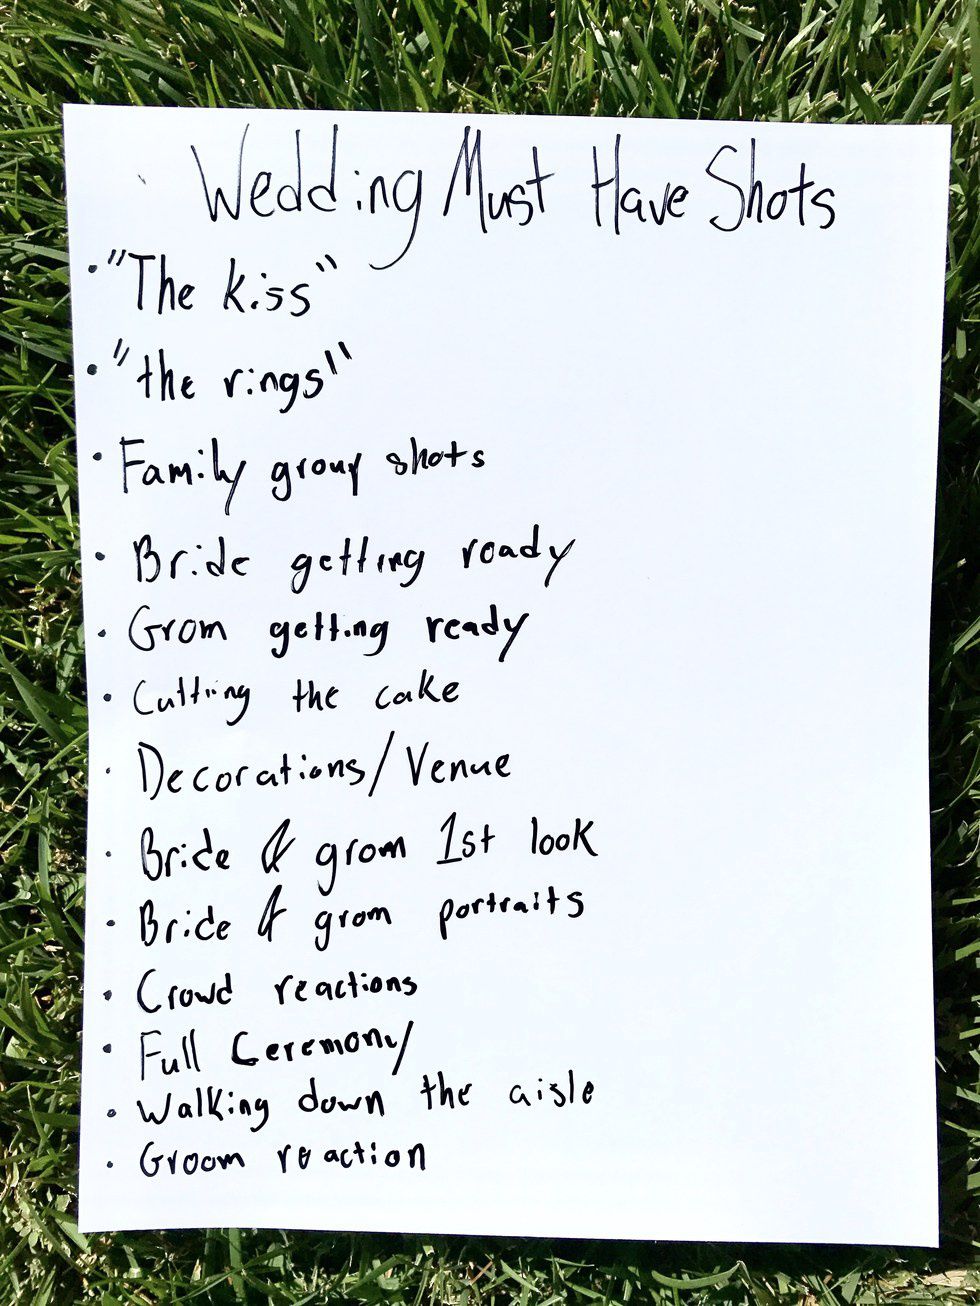 Wedding Must Have Shots
• "The kiss"
• "the rings"
• Family group shots
• Bride getting ready
• Grom getting ready
• Cutting the cake
• Decorations/Venue
• Bride & grom 1st look
• Bride & grom portraits
• Crowd reactions
• Full Ceremony
• Walking down the aisle
• Groom reaction